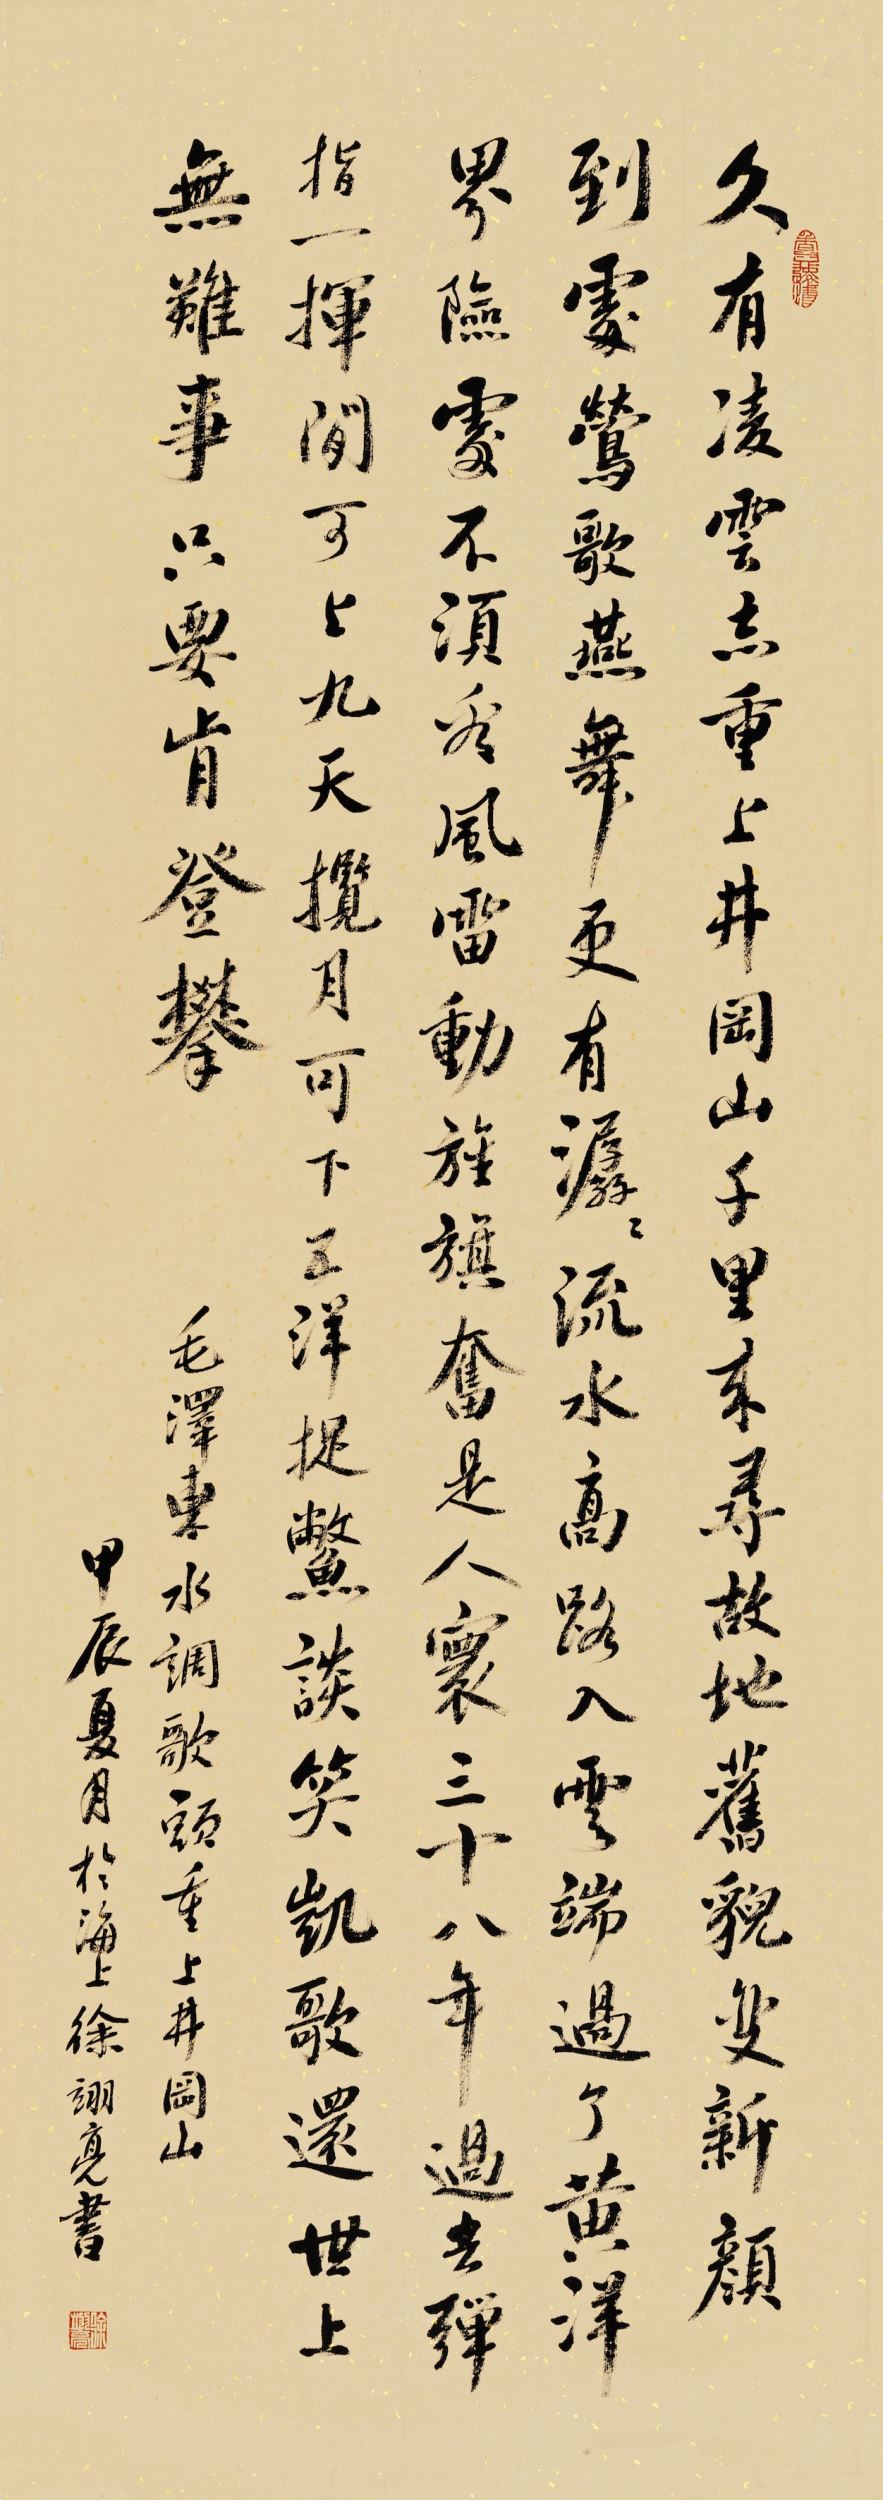 久有凌雲志重上井岡山千里來尋故地舊貌變新顏
到處鶯歌燕舞更有潺〻流水高路入雲端過了黃洋
界險處不須看風雷動旌旗奮是人寰三十八年過去彈
指一揮間可上九天攬月可下五洋捉鱉談笑凱歌還世上
無難事只要肯登攀
毛澤東水調歌頭重上井岡山
甲辰夏月於海上徐翊亮書